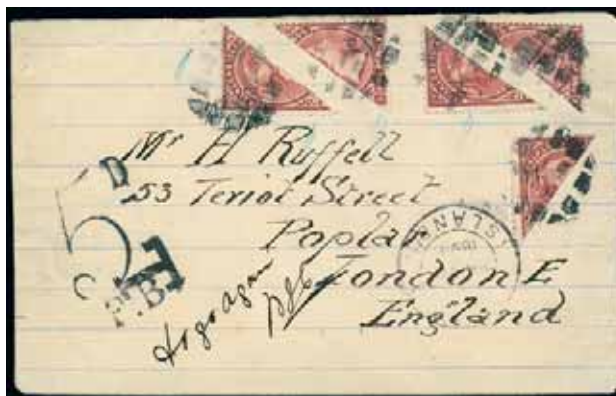 Mr H Ruffell
53 Teriot Street
Poplar
London E
England
5D
F.B.
T
ISLAN